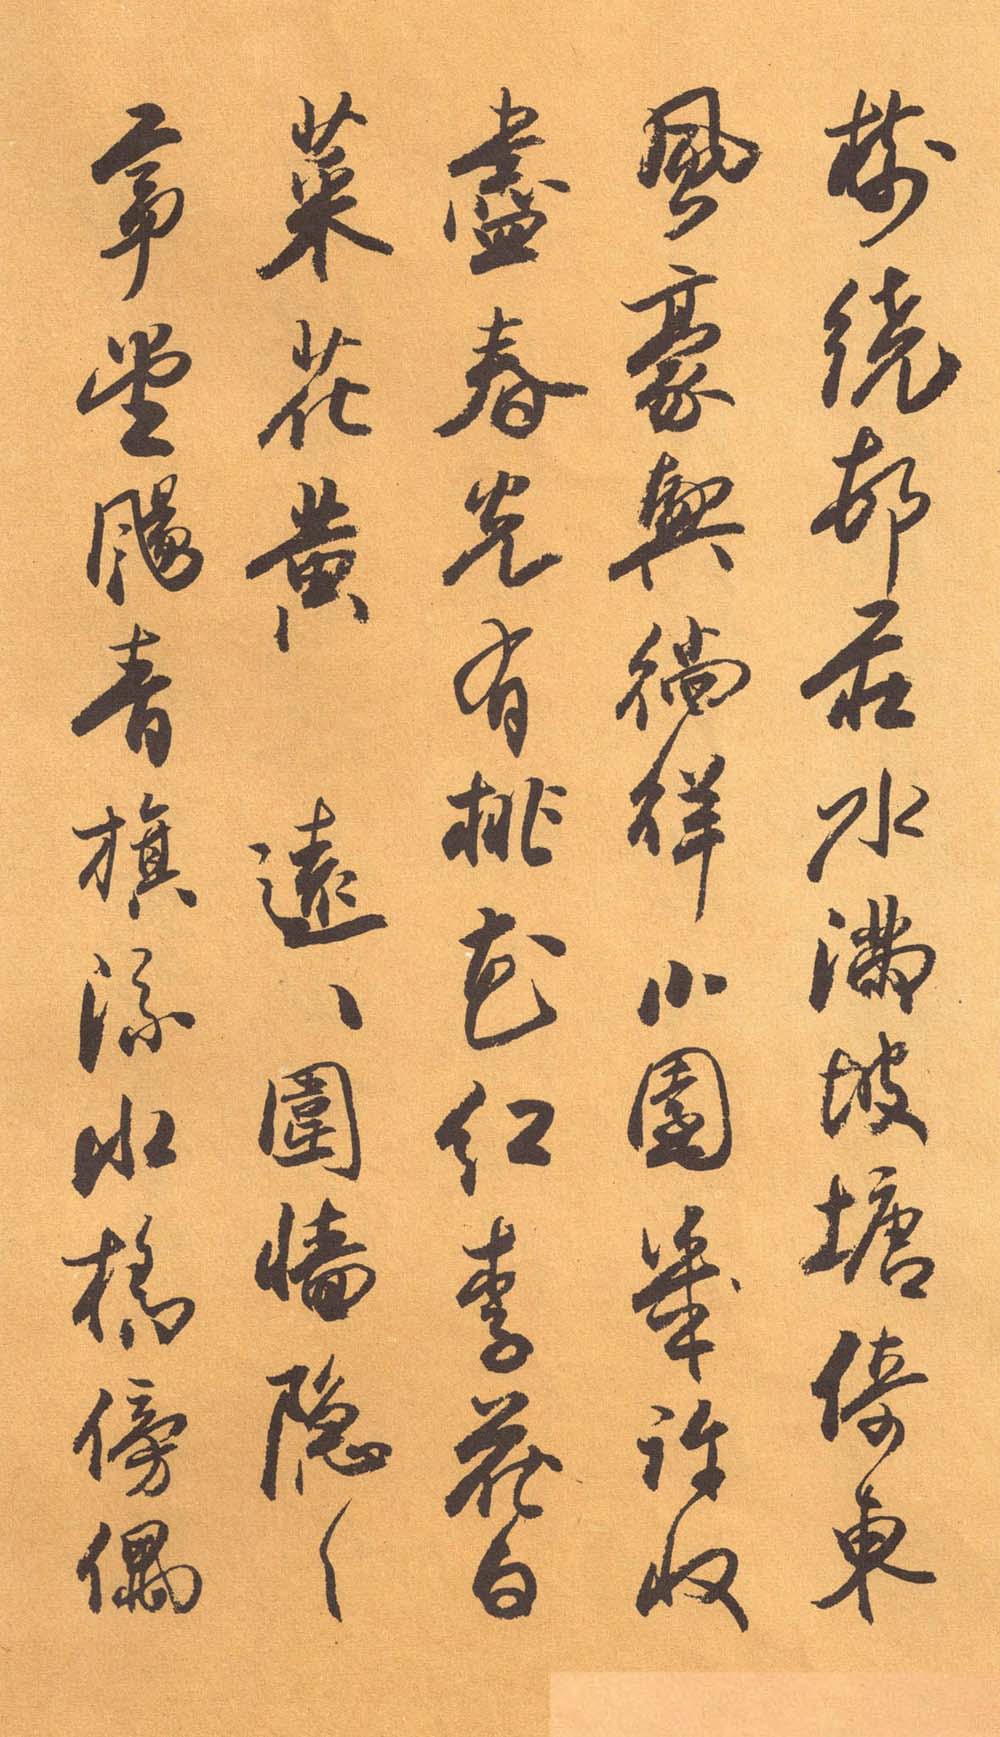 樹繞邨庄水滿坡塘倚東
風豪興徜徉小園幾許收
盡春光有桃花紅李花白
菜花黃 遠々圍墻隱々
茅堂颺青旗流水橋傍偶